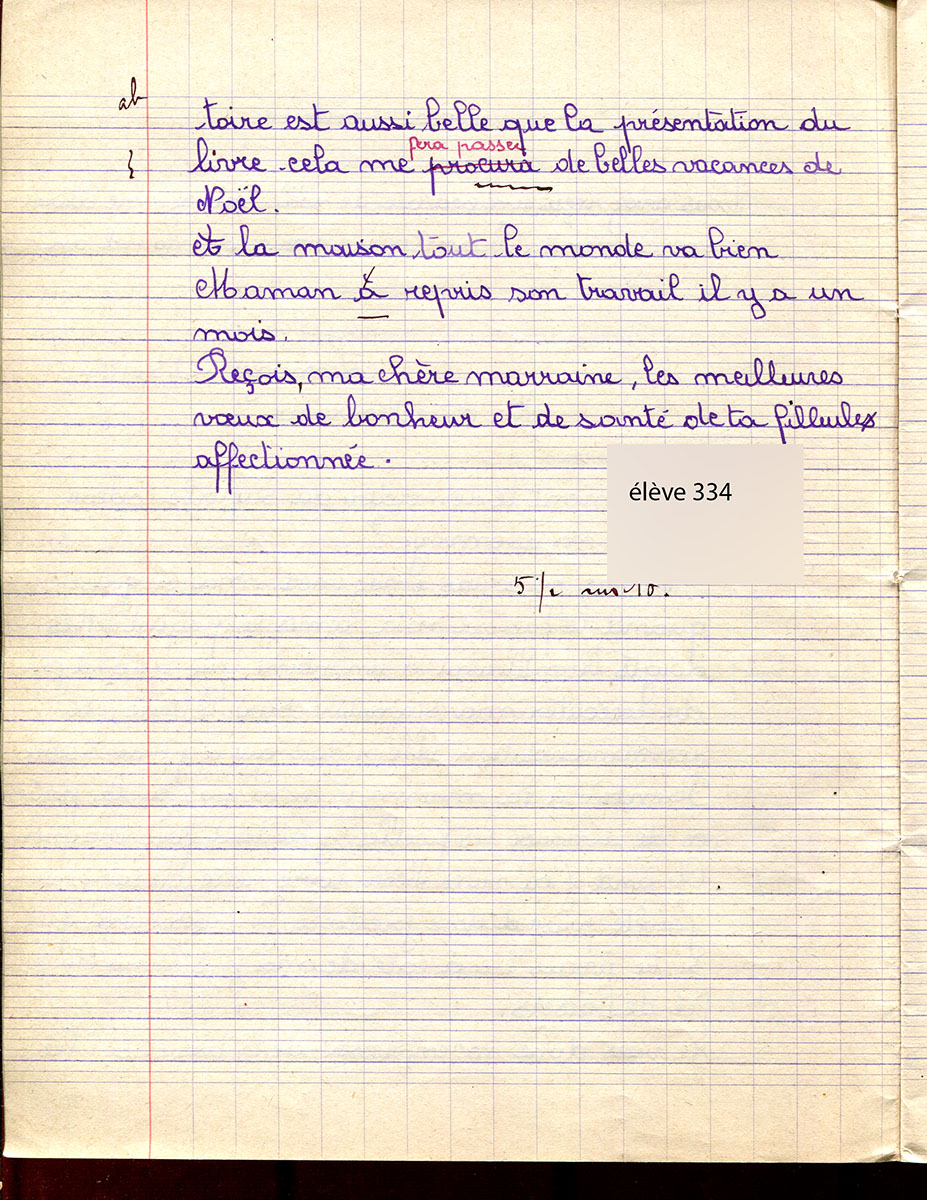 ab
toire est aussi belle que la présentation du
fera passer
livre cela me procura de belles vacances de
Noël.
et la maison tout le monde va bien
Maman à repris son travail il y a un
mois.
Reçois, ma chère marraine, les meilleures
vœux de bonheur et de santé de ta filleule
affectionnée.
élève 334
5 1/2 sur 10.